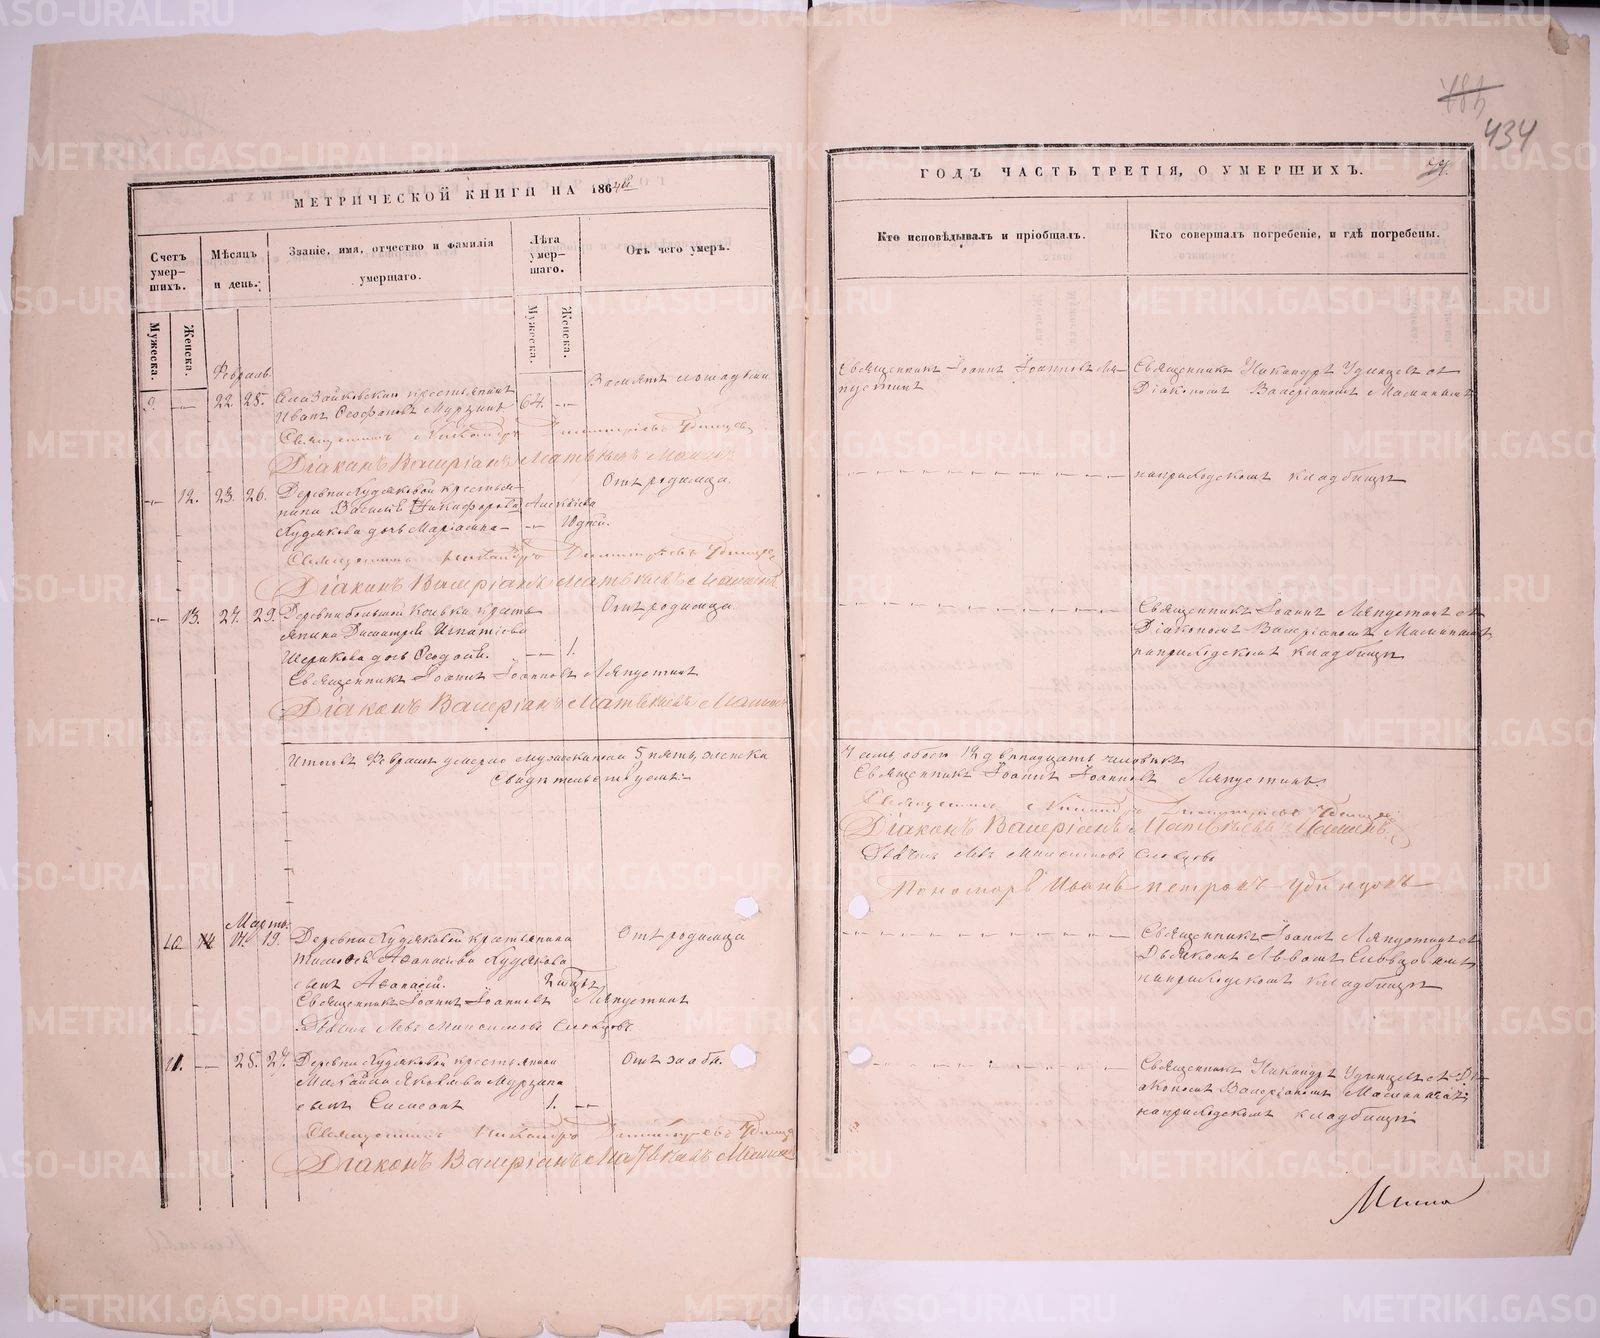 434
МЕТРИЧЕСКОЙ КНИГИ НА 1864й
Счетъ умер-шихъ.
Мужеска.
Женска.
Мѣсяцъ и день.
Званіе, имя, отчество и фамилія умершаго.
Лѣта умер-шаго.
Мужеска.
Женска.
Отъ чего умеръ.
Февраль
9. — 22 25.
крестьянинъ
Иванъ Ѳеофановъ Мурзинъ 64. —
Священникъ Никандръ Димитріевъ Удинцевъ
Діаконъ Валеріанъ Матвѣевъ Маминъ
— 12. 23. 26.
Деревни Худяковой крестья-
нина Василія Никифорова
Худякова дочь Маріамна — 10 дней.
Отъ родимца.
Священникъ Никандръ Димитріевъ Удинцевъ
Діаконъ Валеріанъ Матвѣевъ Маминъ
— 13. 27. 29.
Деревни большой кресть
янина Димитрія Игнатіева
дочь Ѳеодосія. — 1.
Отъ родимца
Священникъ Іоаннъ Іоанновъ Ляпустинъ
Діаконъ Валеріанъ Матвѣевъ Маминъ
Итого въ Февралѣ умерло мужеска пола 5 пять, женска
Свидѣтельствуемъ:
Мартъ.
10 19.
Деревни Худяковой крестьянина
Аѳанасіева Худякова
сынъ Аѳанасій.
Отъ родимца
Священникъ Іоаннъ Іоанновъ Ляпустинъ
Дьячекъ Левъ Максимовъ Словцовъ.
11. — 25. 27.
Деревни Худяковой крестьянина
Михаила Яковлева Мурзина
сынъ Симеонъ 1. —
Священникъ Никандръ Димитріевъ Удинцевъ
Діаконъ Валеріанъ Матвѣевъ Маминъ
ГОДЪ ЧАСТЬ ТРЕТІЯ, О УМЕРШИХЪ.
Кто исповѣдывалъ и пріобщалъ.
Кто совершалъ погребеніе, и гдѣ погребены.
Священникъ Іоаннъ Іоанновъ Ля-
пустинъ
Священникъ Никандръ Удинцевъ съ
Діакономъ Валеріаномъ Маминымъ
на приходскомъ кладбищѣ
Священникъ Іоаннъ Ляпустинъ съ
Діакономъ Валеріаномъ Маминымъ
на приходскомъ кладбищѣ
7 семь, обоего 12 двѣнадцать человѣкъ
Священникъ Іоаннъ Іоанновъ Ляпустинъ.
Священникъ Никандръ Димитріевъ Удинцевъ
Діаконъ Валеріанъ Матвѣевъ Маминъ.
Дьячекъ Левъ Максимовъ Словцовъ
Пономарь Иванъ Петровъ Удинцовъ
Священникъ Іоаннъ Ляпустинъ съ
Дьячкомъ Львомъ Словцовымъ
на приходскомъ кладбищѣ
Священникъ Никандръ Удинцевъ съ Ді-
акономъ Валеріаномъ Маминымъ
на приходскомъ кладбищѣ
METRIKI.GASO-URAL.RU